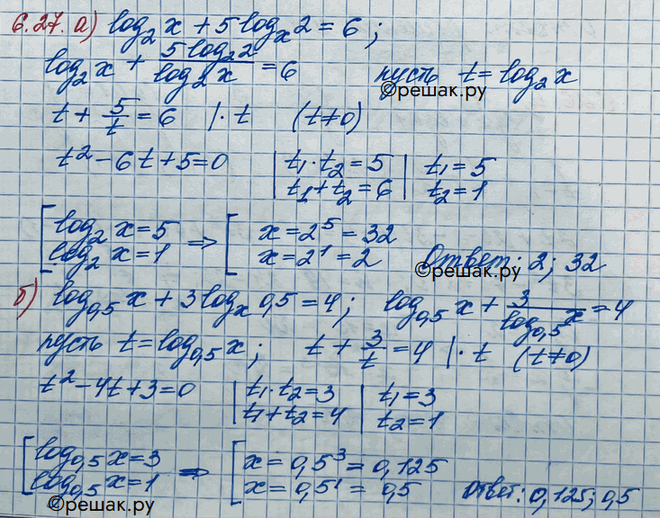 6.27. а) log₂ x + 5 logₓ 2 = 6 ;
log₂ x + 5 log₂ 2 / log₂ x = 6 пусть t = log₂ x
©решак.ру
t + 5/t = 6 | · t (t ≠ 0)
t² - 6t + 5 = 0 | t₁ · t₂ = 5 | t₁ = 5
t₁ + t₂ = 6 | t₂ = 1
[ log₂ x = 5 ⇒ [ x = 2⁵ = 32
log₂ x = 1 x = 2¹ = 2 Ответ: 2; 32
©решак.ру
б) log₀,₅ x + 3 logₓ 0,5 = 4 ; log₀,₅ x + 3 / log₀,₅ x = 4
пусть t = log₀,₅ x ; t + 3/t = 4 | · t (t ≠ 0)
t² - 4t + 3 = 0 | t₁ · t₂ = 3 | t₁ = 3
t₁ + t₂ = 4 | t₂ = 1
[ log₀,₅ x = 3 ⇒ [ x = 0,5³ = 0,125
log₀,₅ x = 1 x = 0,5¹ = 0,5 Ответ: 0,125; 0,5
©решак.ру